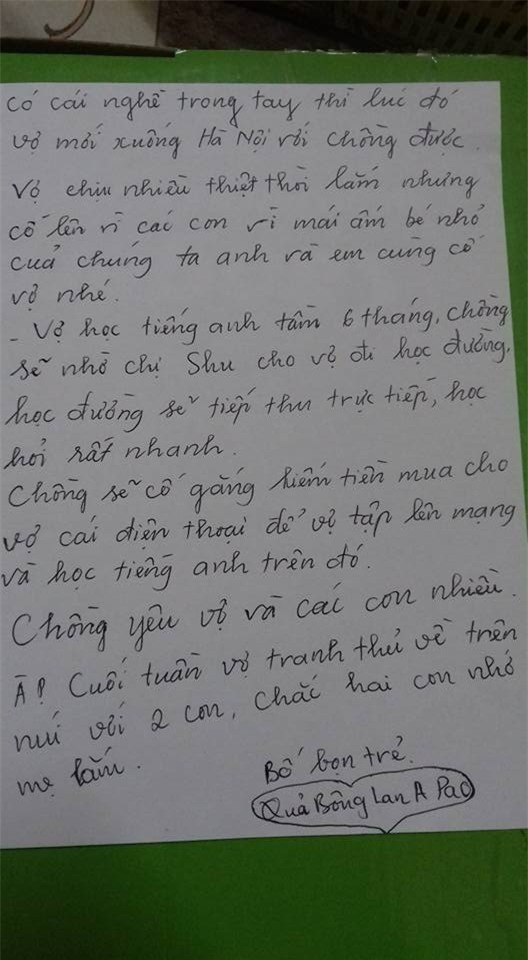 có cái nghề trong tay thì lúc đó
vợ mới xuống Hà Nội với chồng được.
Vợ chịu nhiều thiệt thòi lắm nhưng
cố lên vì các con vì mái ấm bé nhỏ
của chúng ta anh và em cùng cố
vợ nhé.
- Vợ học tiếng anh tầm 6 tháng, chồng
sẽ nhờ chị Shu cho vợ đi học đường.
học đường sẽ tiếp thu trực tiếp, học
hỏi rất nhanh.
Chồng sẽ cố gắng kiếm tiền mua cho
vợ cái điện thoại để vợ tập lên mạng
và học tiếng anh trên đó.
Chồng yêu vợ và các con nhiều.
À! Cuối tuần vợ tranh thủ về trên
núi với 2 con, chắc hai con nhớ
mẹ lắm.
Bố bọn trẻ.
Quả Bông Lan A Pao